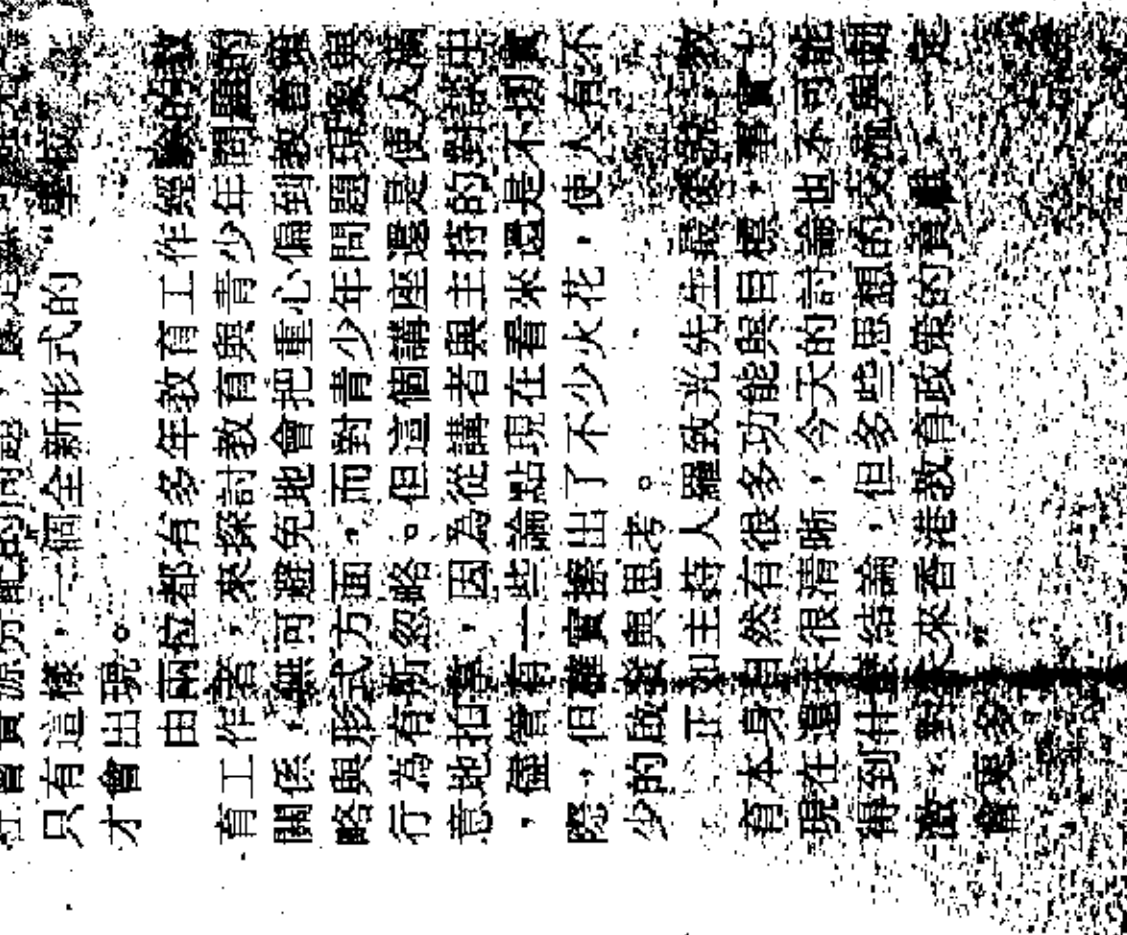 會資源分配的問題,
只有這樣,一個全新形式的“學校”
才會出現。
由兩位都有多年教育工作經驗的教
育工作者,來探討教育與青少年問題的
關係,無可避免地會把重心偏到教育策
略與形式方面,而對青少年問題現象與
行為有所忽略。但這個講座還是使人滿
意地拍掌,因為從講者與主持的對話中
,儘管有一些論點現在看來還是不切實
際,但確實擦出了不少火花,使人有不
少的啟發與思考。
正如主持人羅致光先生最後說:教
育本身自然有很多功能與目標,事實上
現在還未很清晰,今天的討論也不可能
得到什麼結論,但多些思想的交流與刺
激,對未來香港教育政策的貢獻,一定
會更多。”